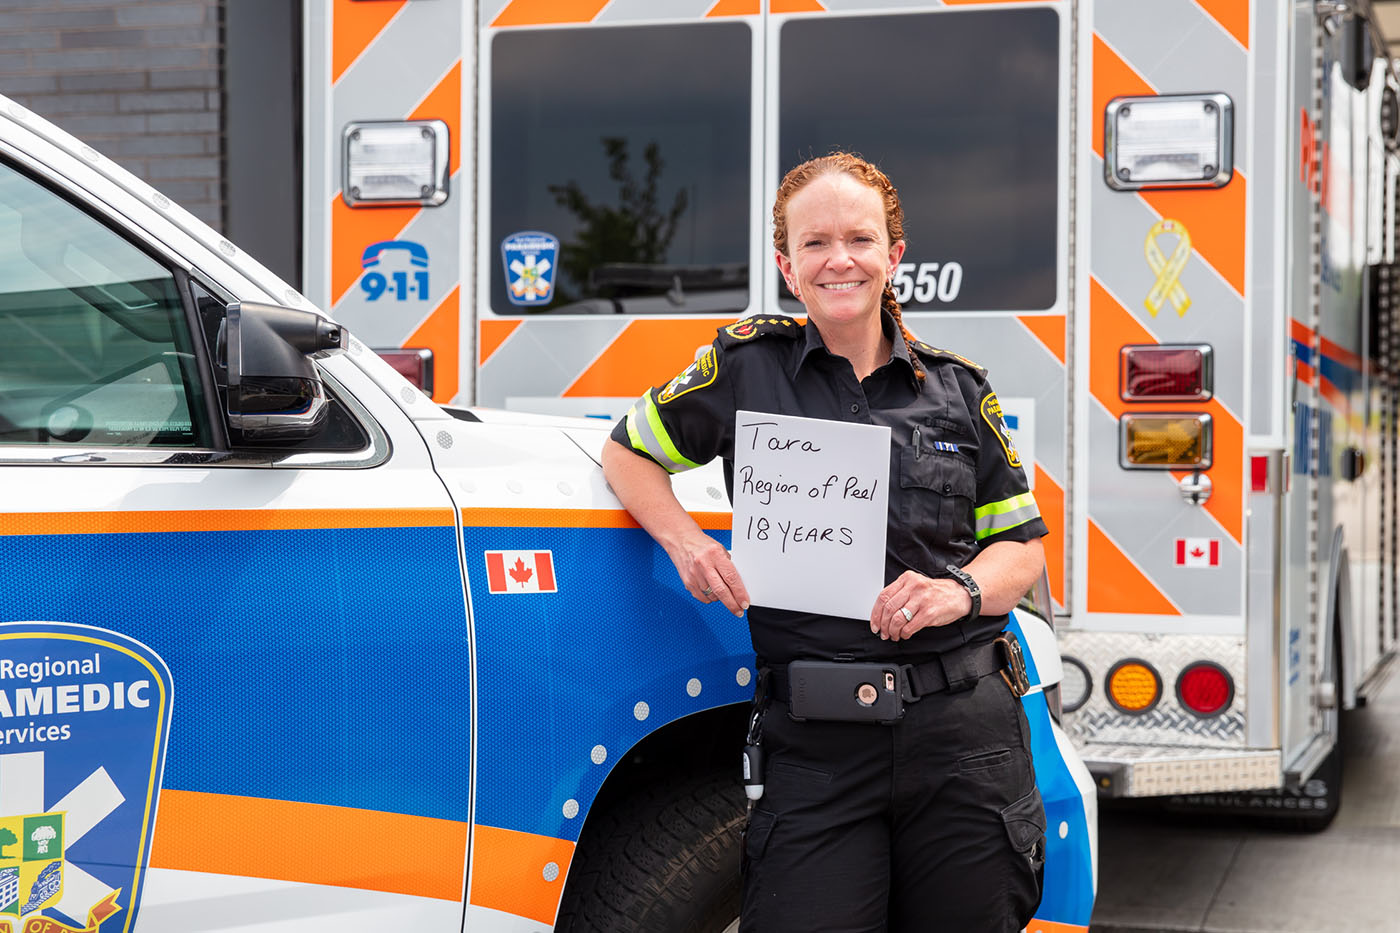 Tara
Region of Peel
18 YEARS
9-1-1
PARAMEDIC
550
Regional
AMEDIC
ervices